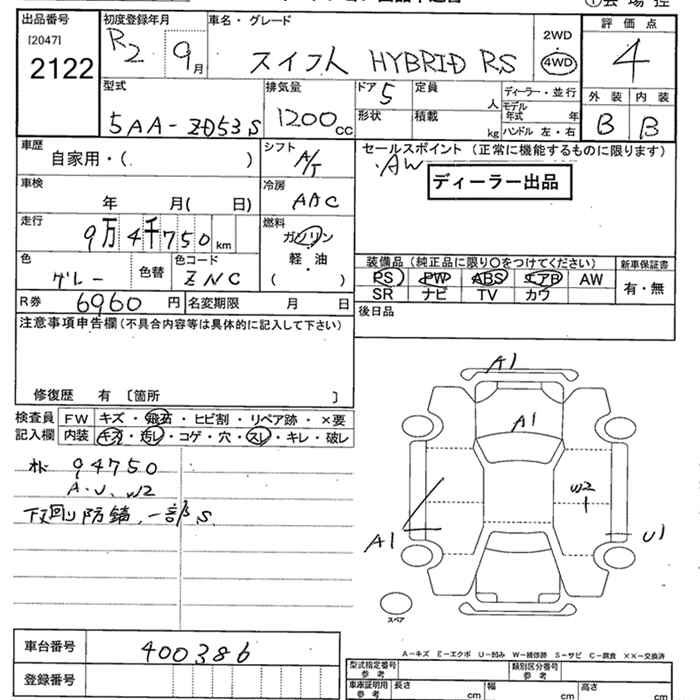 出品番号
[2047]
2122
初度登録年月
R2 9月
車名・グレード
スイフト HYBRID RS
2WD
4WD
評価点
4
型式
5AA-ZD53S
排気量
1200cc
ドア 5
形状
定員 人
積載 kg
ディーラー・並行
モデル年式 年
ハンドル 左・右
外装 内装
B B
車歴
自家用・( )
シフト
A/T
セールスポイント（正常に機能するものに限ります）
・AW
ディーラー出品
車検
年 月( 日)
冷房
AAC
走行
9万4千750km
燃料
ガソリン
軽・油
( )
色
グレー
色替
色コード
ZNC
装備品（純正品に限り○をつけてください）
PS PW ABS エアB AW
SR ナビ TV カワ
新車保証書
有・無
R券 6960円
名変期限 月 日
後日品
注意事項申告欄(不具合内容等は具体的に記入して下さい)
修復歴 有 〔箇所 〕
検査員
記入欄
FW キズ・飛石・ヒビ割・リペア跡・×要
内装 キズ・汚レ・コゲ・穴・スレ・キレ・破レ
94750
A.U.W2
下回り防錆、一部S
A1
A1
W2
A1
U1
スペア
A-キズ E-エクボ U-凹み W-補修跡 S-サビ C-腐食 ××-交換済
車台番号
400386
登録番号
型式指定番号
参考
類別区分番号
参考
車庫証明用
参考
長さ cm
幅 cm
高さ cm